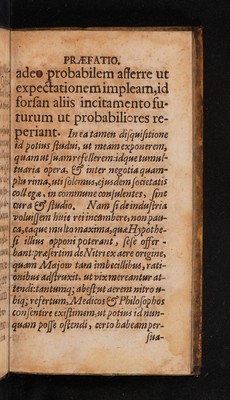 PRÆFATIO.
adeo probabilem afferre ut
expectationem impleam, id
forsan aliis incitamento fu-
turum ut probabiliores re-
periant. In ea tamen disquisitione
id potius studui, ut meam exponerem,
quam ut suam refellerem: idque tumul-
tuaria opera, & inter negotia quam-
plurima, uti solemus, ejusdem societatis
collegæ, in commune consulentes, sint
cura & studio. Nam si de industria
voluissem huic rei incumbere, non pau-
ca, eaque multo maxima, quæ Hypothe-
si illius opponi poterant, sese offer-
bant: præsertim de Nitri ex aere origine,
quam Majow tam imbecillibus, rati-
onibus adstruxit, ut vix mereantur at-
tendi: tantumq; abest ut aerem nitro u-
biq; refertum, Medicos & Philosophos
consentire existimem, ut potius id nun-
quam posse ostendi, certo habeam per-
sua-